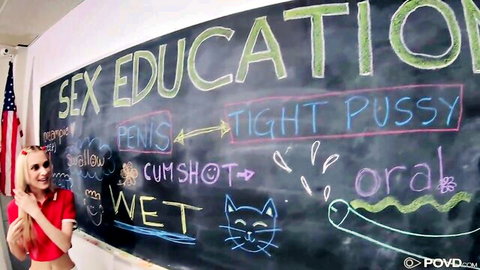 POVD.COM
SEX EDUCATION
PENIS
TIGHT PUSSY
swallow
CUMSHOT
oral
WET
POVD.COM